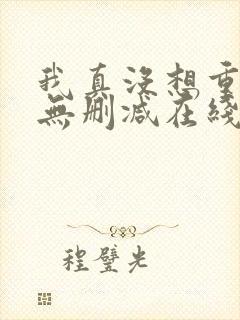 我真没想重
無删减在綫
程璧光